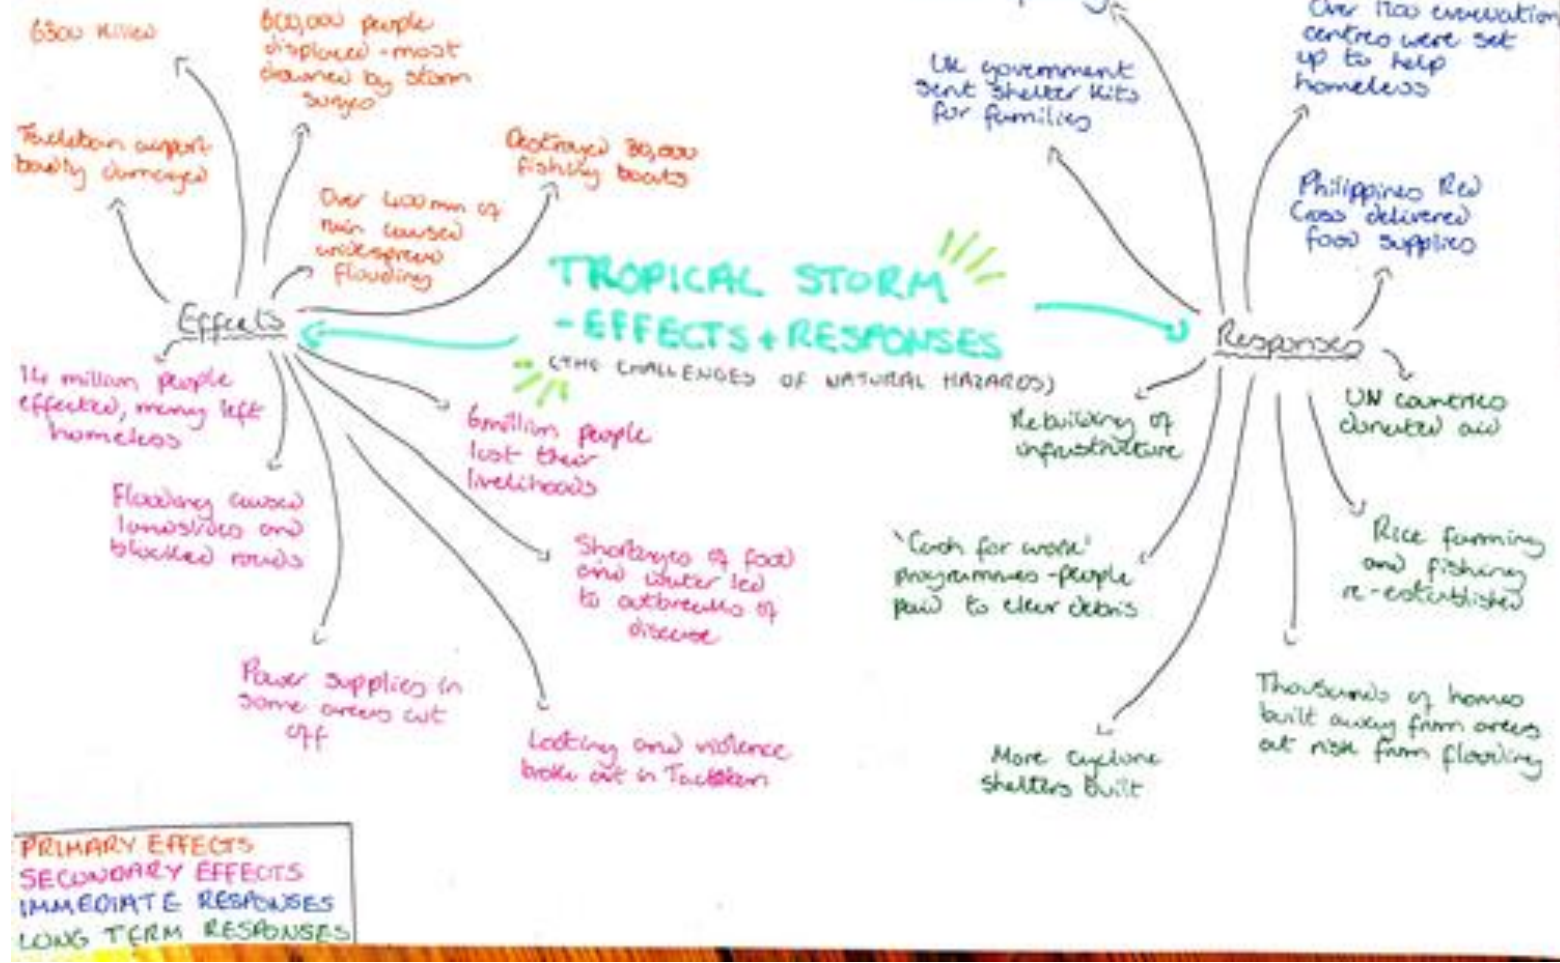 6300 killed
600,000 people
displaced - most
drowned by storm
surges
Tacloban airport
badly damaged
Over 400mm of
rain caused
widespread
flooding
Destroyed 30,000
fishing boats
Effects
TROPICAL STORM
- EFFECTS + RESPONSES
(THE CHALLENGES OF NATURAL HAZARDS)
14 million people
effected, many left
homeless
Flooding caused
landslides and
blocked roads
Power supplies in
some areas cut
off
6million people
lost their
livelihoods
Shortages of food
and water led
to outbreaks of
disease
Looting and violence
broke out in Tacloban
UK government
sent shelter kits
for families
Over 1200 evacuation
centres were set
up to help
homeless
Philippines Red
Cross delivered
food supplies
Responses
Rebuilding of
infrastructure
UN countries
donated aid
'Cash for work'
programmes - people
paid to clear debris
Rice farming
and fishing
re-established
More cyclone
shelters built
Thousands of homes
built away from areas
at risk from flooding
PRIMARY EFFECTS
SECONDARY EFFECTS
IMMEDIATE RESPONSES
LONG TERM RESPONSES